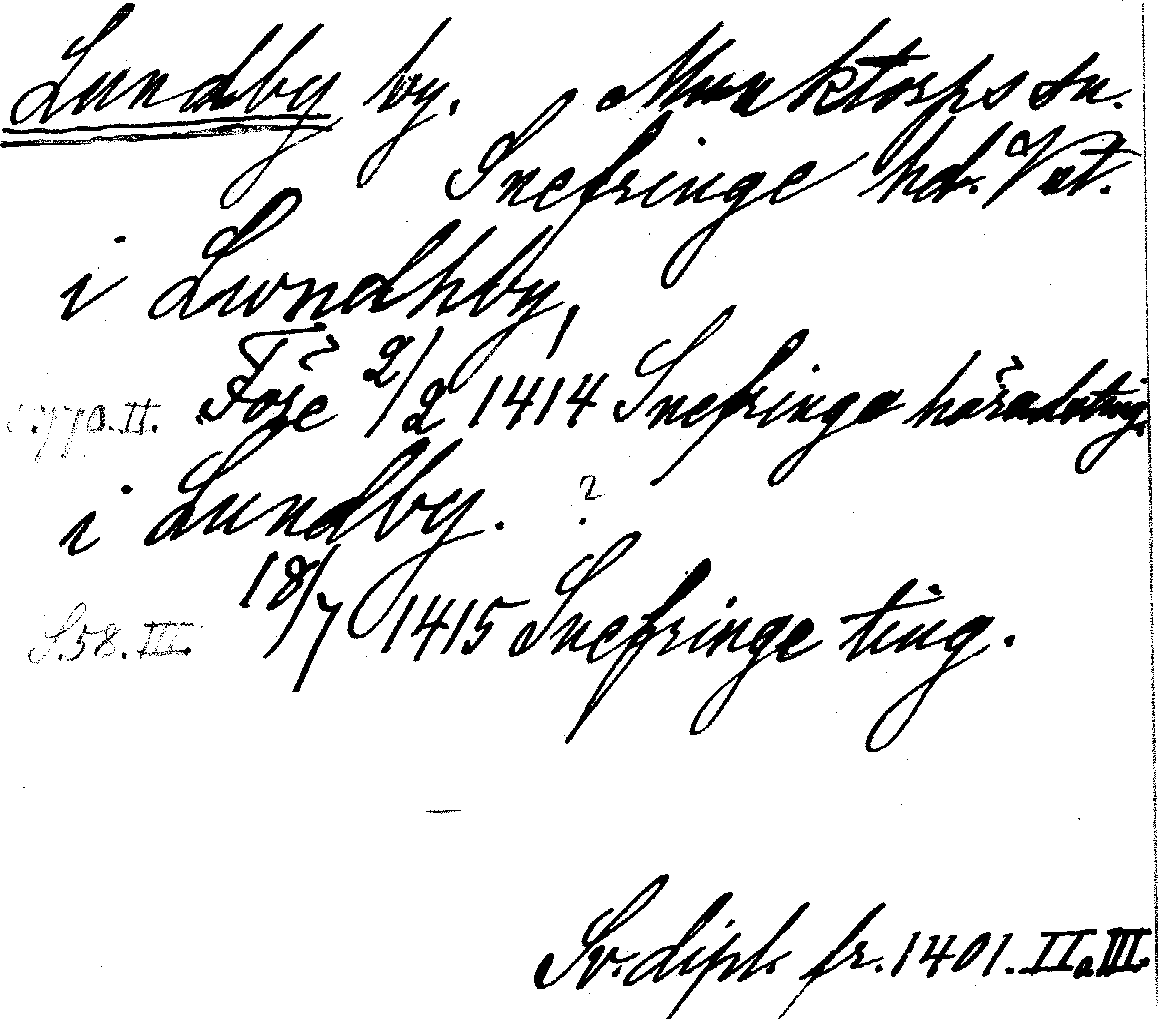 Lundby by. Munktorps sn.
Snefringe hd. Vst.
i Lwndhby,
Före 2/2 1414 Snefringe häradsting.
S. 770. II.
i Lundby. ?
18/7 1415 Snefringe ting.
S. 58. III.
Sv. dipl. fr. 1401. II o. III.